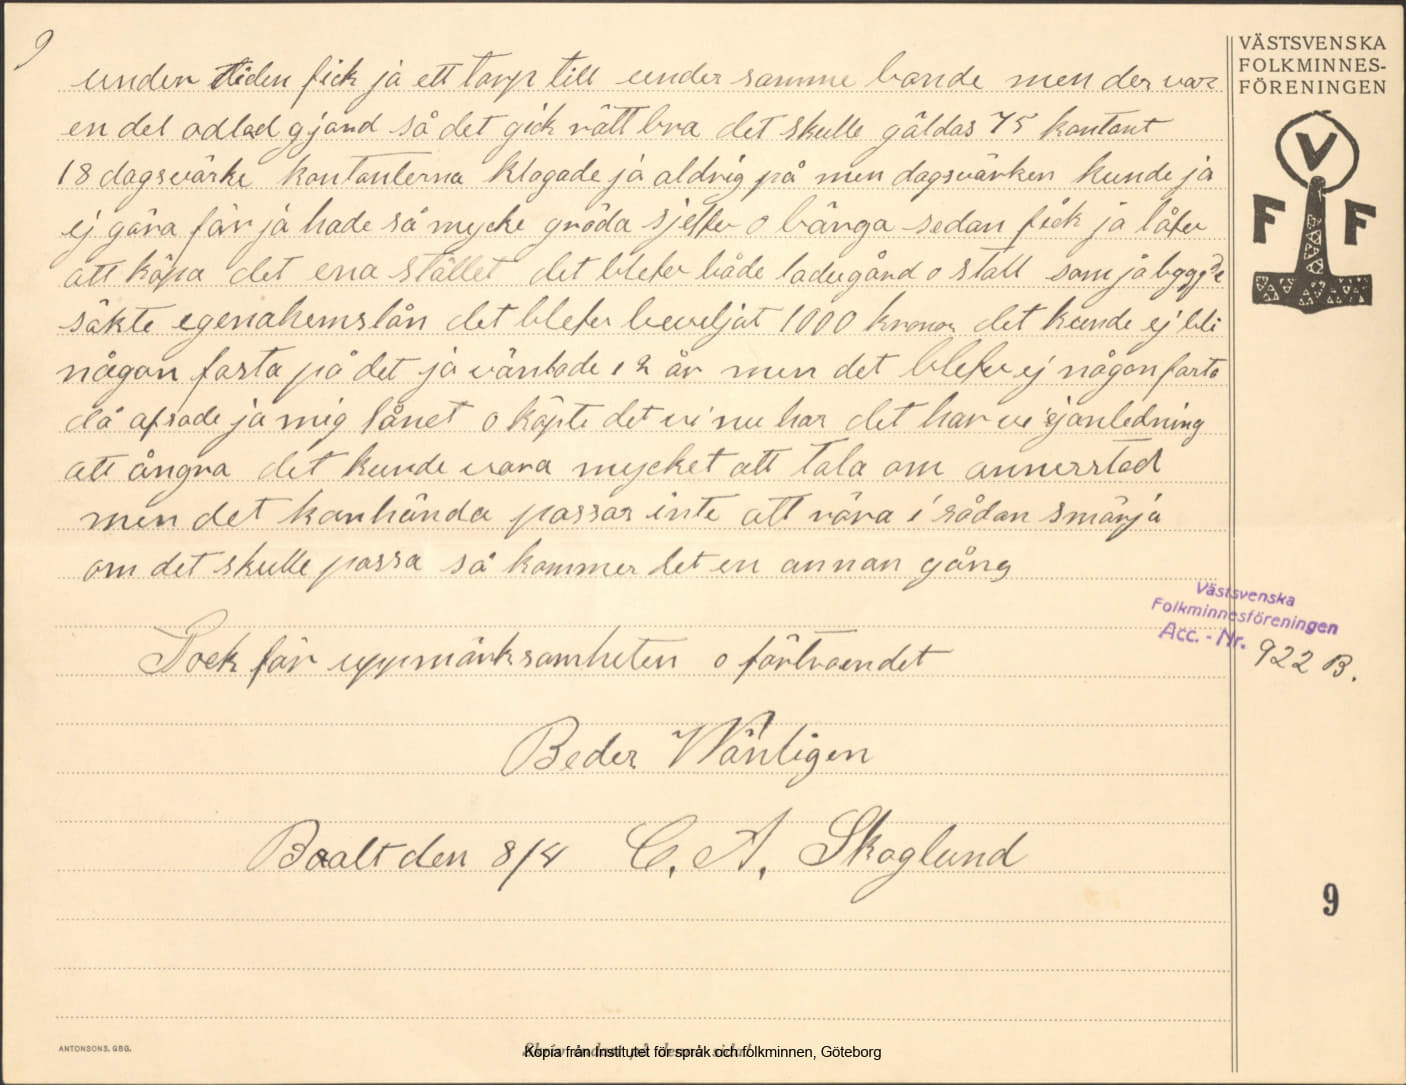 9
under tiden fick ja ett torp till under samme bonde men der var
en del odlad gjord så det gick rätt bra det skulle gäldas 75 kontant
18 dagsvärke kontanterna klagade ja aldrig på men dagsvärken kunde ja
ej göra för ja hade så mycke gröda sjelfv o bärga sedan fick ja låfv
att köpa det ena stället det blefv både ladugård o stall som ja byggde
sökte egenahemslån det blefv beviljat 1000 kronor det kunde ej bli
någon fasta på det ja väntade i 2 år men det blefv ej någon fasta
då afsade ja mig lånet o köpte det vi nu har det har vi ej anledning
att ångra det kunde vara mycket att tala om annorstad
men det kanhända passar inte att röra i sådan smörja
om det skulle passa så kommer det en annan gång
Tack för uppmärksamheten o förtroendet
Beder Wänligen
Boalt den 8/4 C. A. Skoglund
VÄSTSVENSKA
FOLKMINNES-
FÖRENINGEN
V
F F
Västsvenska
Folkminnesföreningen
Acc. - Nr. 922 B.
9
ANTONSONS, GBG.
Kopia från Institutet för språk och folkminnen, Göteborg